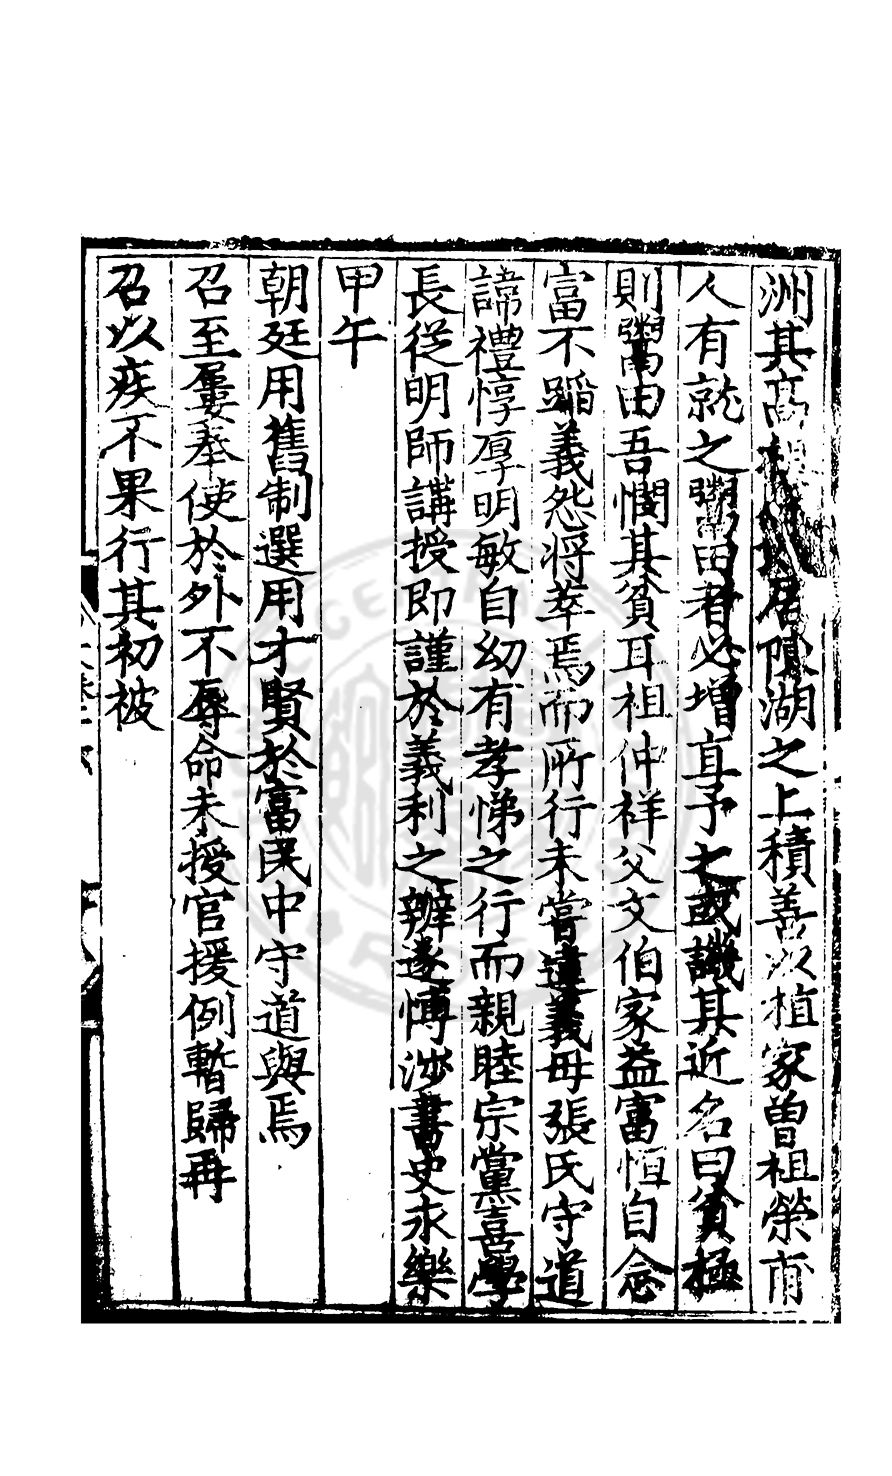 洲其高祖居陳湖之上積善以植家曽祖榮甫
人有就之鬻田者必增直予之或譏其近名曰貧極
則鬻田吾憫其貧耳祖仲祥父文伯家益富恒自念
富不蹈義怨将萃焉而所行未嘗違義母張氏守道
諱禮惇厚明敏自幼有孝悌之行而親睦宗黨喜學
長從明師講授即謹於義利之辨遂愽涉書史永樂
甲午
朝廷用舊制選用才賢於富民中守道與焉
召至屢奉使於外不辱命未授官援例暫歸再
召以疾不果行其初被